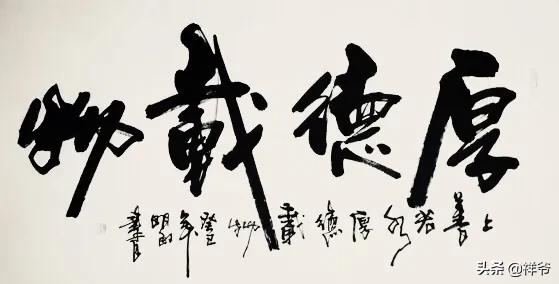 厚德載物
上善若水厚德載物癸巳年明書
头条@祥爷